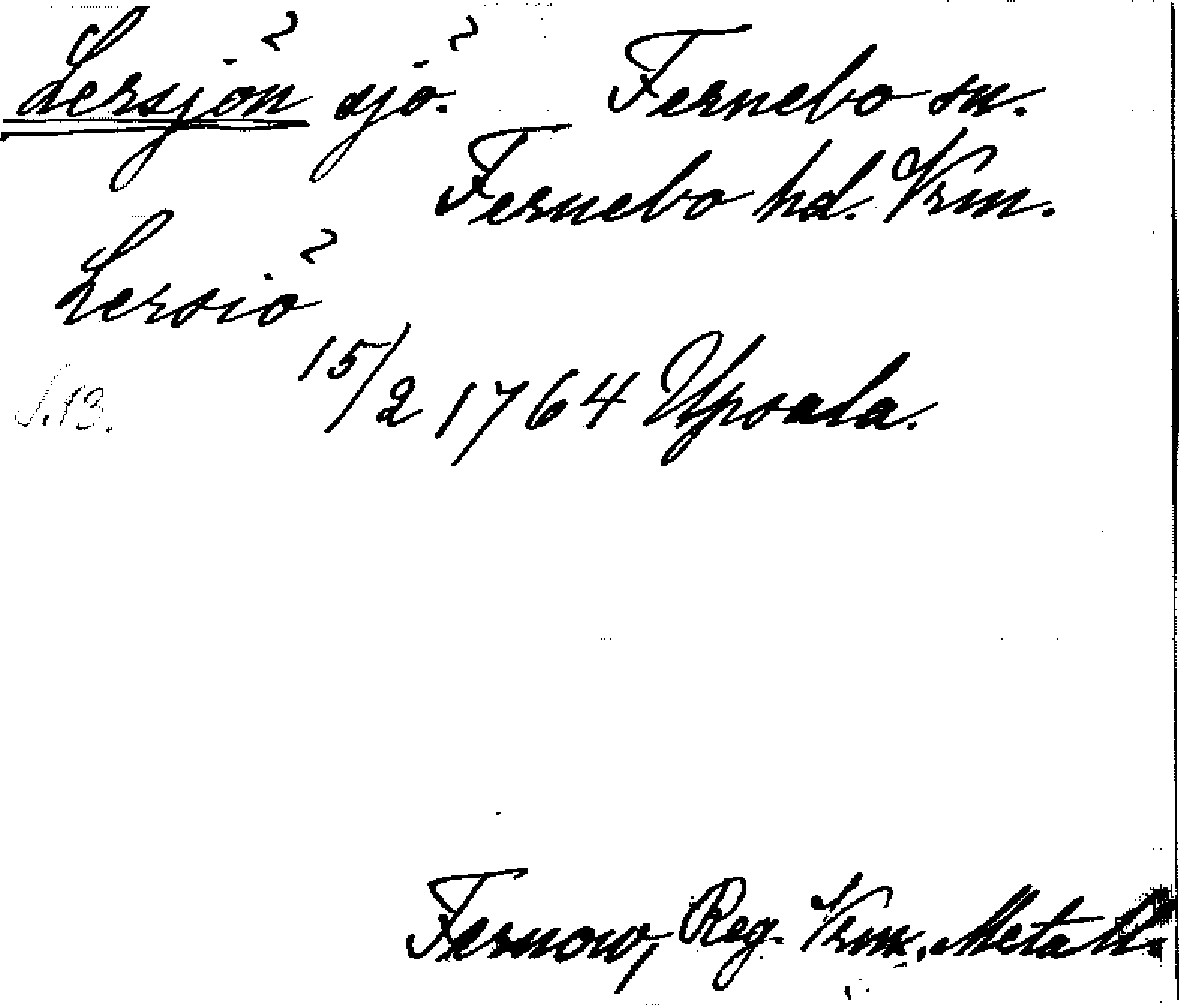 Lersjön sjö. Fernebo sn.
Fernebo hd. Vrm.
Lersiö
S.13. 15/2 1764 Upsala.
Fernow, Reg. Vrm. Metall.